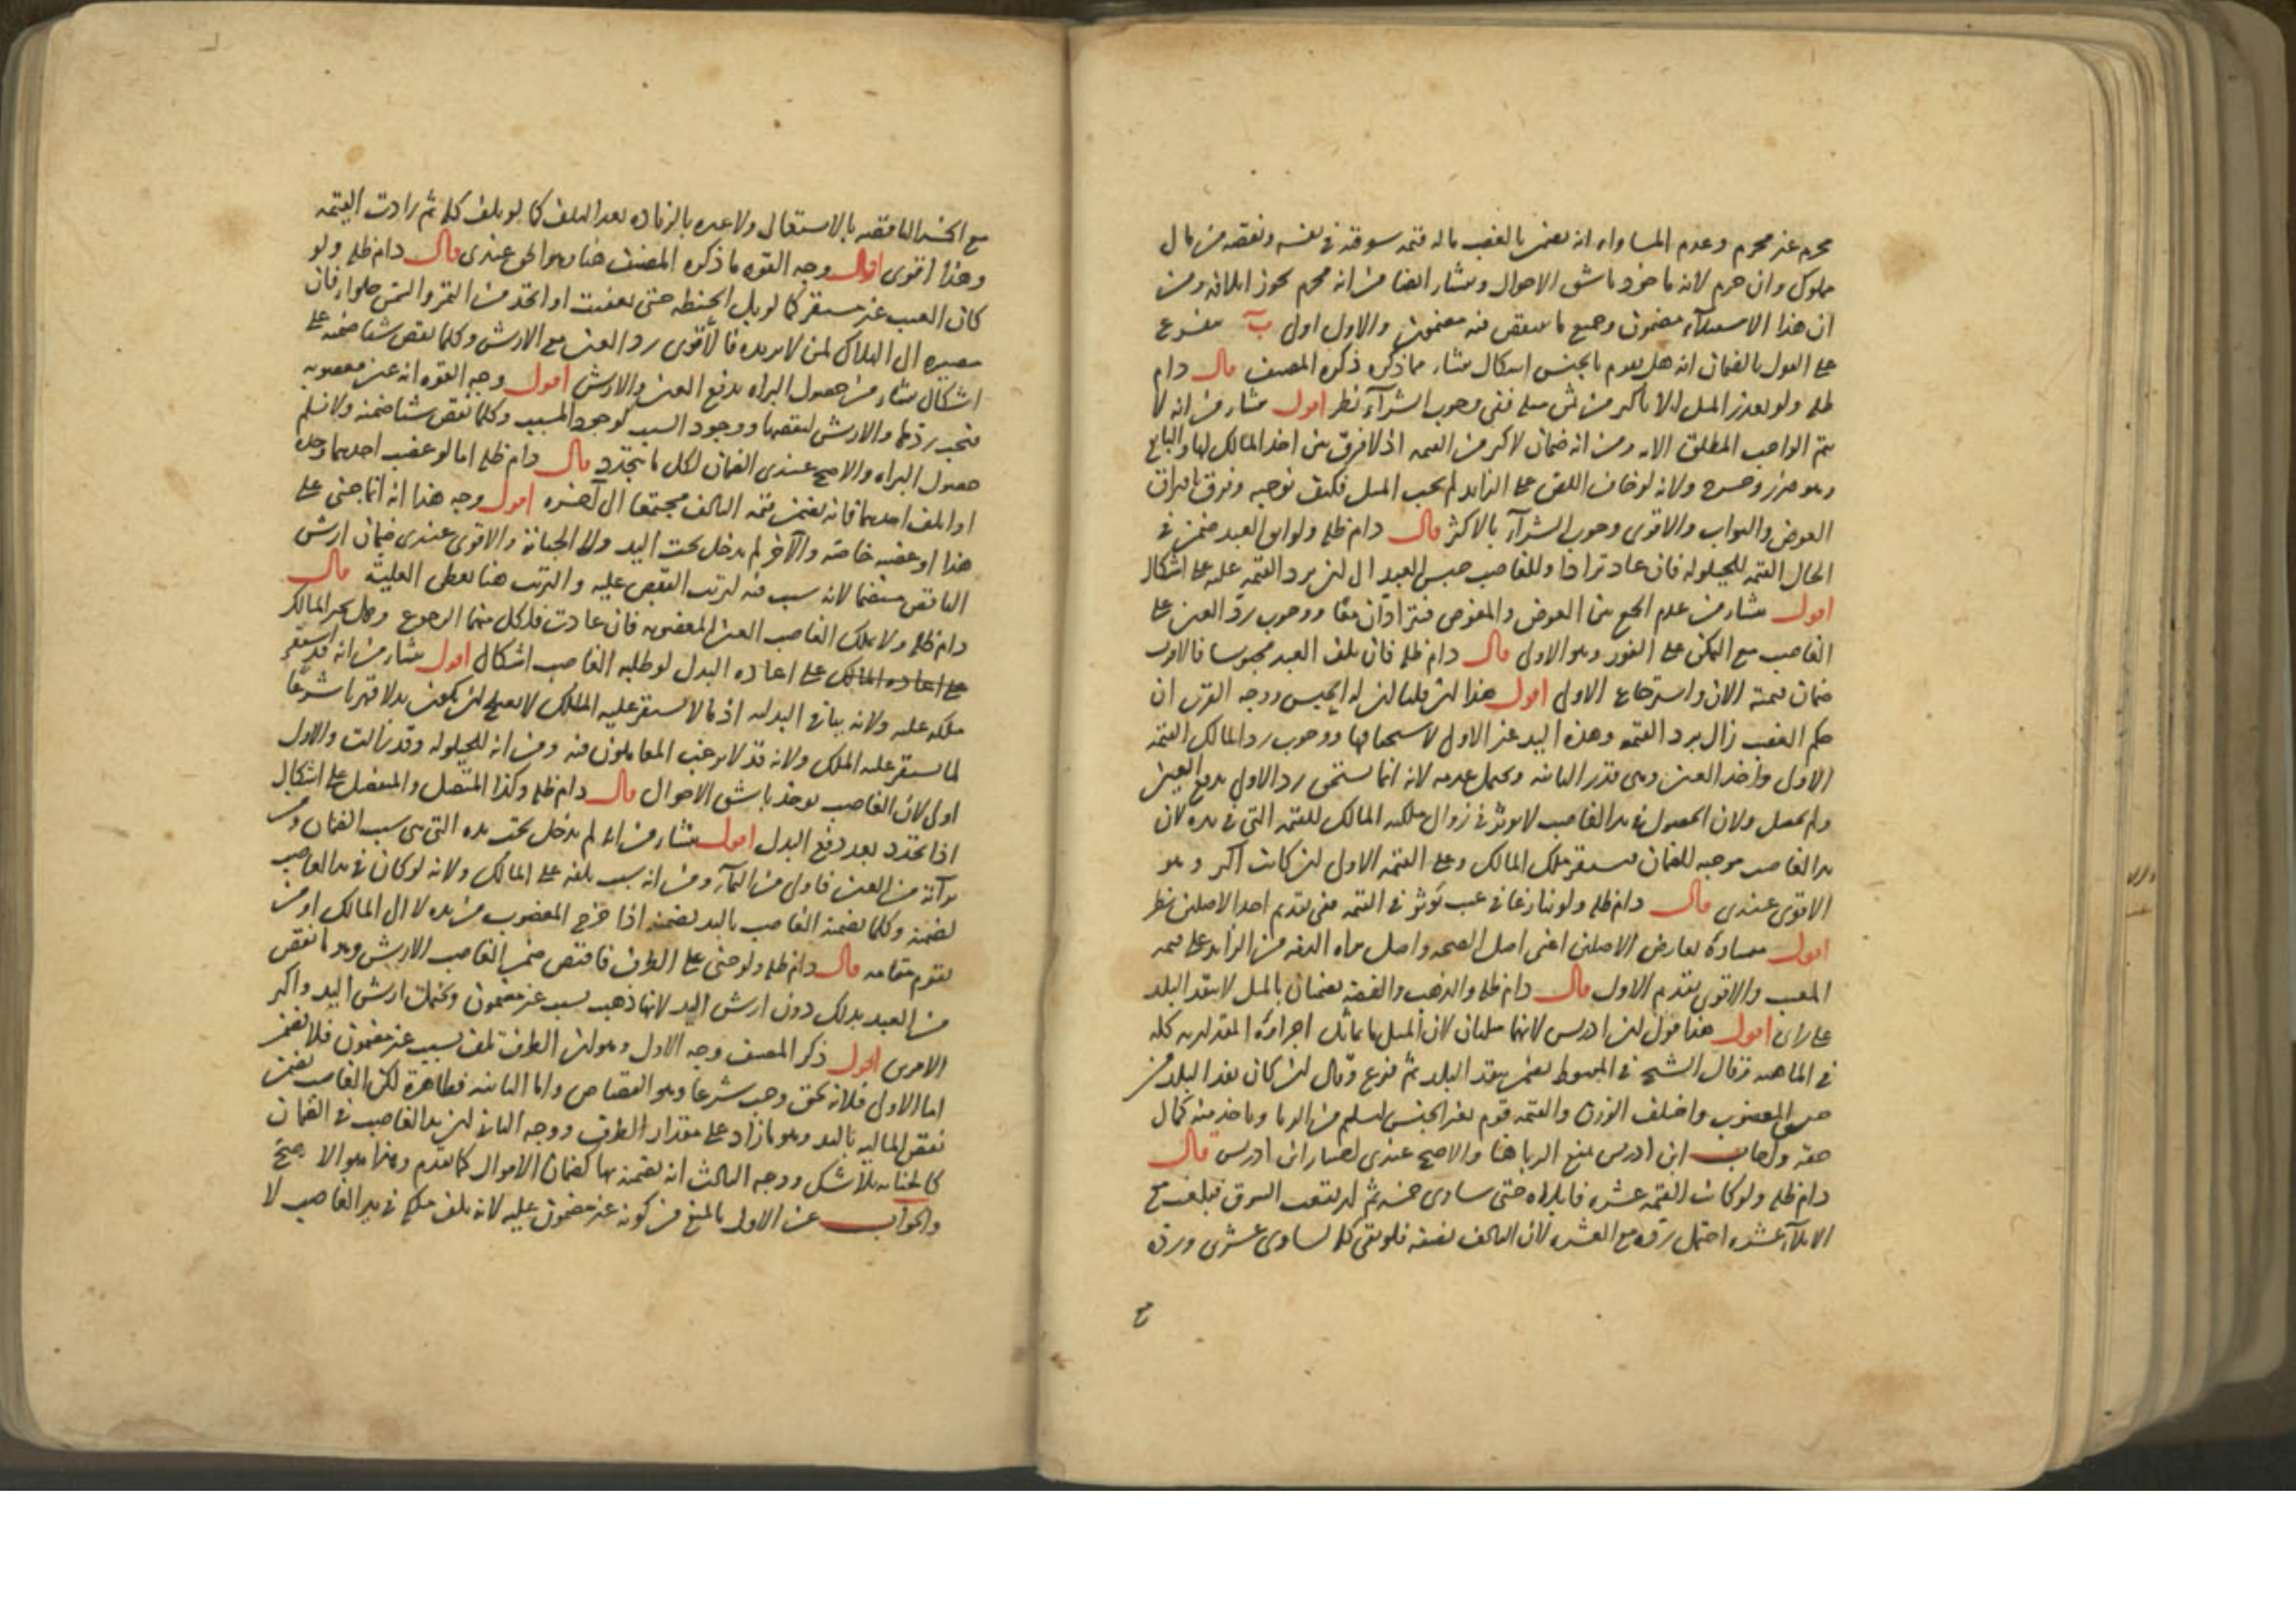 محرم غير محرم وعدم المساواة انه يضمن بالغصب ماله قيمة سوقية في نفسه ونقصه من مال
مملوك وان حرم لانه ماخوذ باشق الاحوال ومنشا ايضا من انه محرم يجوز اتلافه ومن
ان هذا الاستيلاء مضمون وجميع ما ينقص فيه مضمون والاول اولى ب مفرع
على القول بالضمان انه هل يقوم بالجنس اشكال منشاه مما ذكره ذكره المصنف قال دام
ظله ولو تعذر المثل الا باكثر من ثمن مثله ففي وجوب الشرآء نظر اقول منشاه من انه لا
يتم الواجب المطلق الا به ومن انه ضمان لاكثر من القيمة اذ لا فرق بين اخذ المالك لها والبايع
وهو ضرر وحرج ولانه لو خاف اللص على الزايد لم يجب المثل فكيف نوجبه وفرق بافتراق
العوض والثواب والاقوى وجوب الشرآء بالاكثر قال دام ظله ولو ابق العبد ضمن في
الحال القيمة للحيلولة فان عاد ترادا وللغاصب حبس العبد الى ان يرد القيمة عليه على اشكال
اقول منشاه من عدم الجمع بين العوض والمعوض فيترادان معا ووجوب رد العين على
الغاصب مع التمكن على الفور وهو الاولى قال دام ظله فان تلف العبد محبوسا فالاقرب
ضمان قيمته الان واسترجاع الاولى اقول هذا ان قلنا ان له الحبس ووجه القرب ان
حكم الغصب زال برد القيمة وهذه اليد غير الاولى لاستحقاقها ووجوب رد المالك القيمة
الاولى واخذ العين وهى قدر الثانية ويحتمل عدمه لانه انما يستحق رد الاولى بدفع العين
ولم يحصل ولان الحصول في يد الغاصب لا يوثر في زوال ملكية المالك للقيمة التي في يده لان
يد الغاصب موجبة للضمان فيستقر ملك المالك وعلى القيمة الاولى ان كانت اكثر وهو
الاقوى عندى قال دام ظله ولو تنازعا في عيب يوثر في القيمة ففي تقديم احد الاصلين نظر
اقول منشاه تعارض الاصلين اعنى اصل الصحة واصل براة الذمة من الزايد على قيمة
المعيب والاقوى تقديم الاول قال دام ظله والذهب والفضة يضمنان بالمثل لا بنقد البلد
على راى اقول هذا قول ابن ادريس لانهما مثليان لان المثلي ما تماثل اجزاوه المقدارية كله
في الماهية وقال الشيخ في المبسوط يضمن بنقد البلد ثم فرع وقال ان كان نقد البلد من
جنس المغصوب واختلف الوزن والقيمة قوم بغير الجنس ليسلم من الربا وياخذ منه كمال
حقه واجاب ابن ادريس بمنع الربا هنا والاصح عندى اختيار ابن ادريس قال
دام ظله ولو كانت القيمة عشرة فابلاه حتى ساوى خمسة ثم ارتفعت السوق فبلغت مع
الابلاء عشرة احتمل رده مع العشرة لان التالف نصفه فلو بقى كله لساوى عشرين ورده
مع
مع الخمسة الناقصة بالاستعمال ولا عبرة بالزيادة بعد التلف كما لو تلف كله ثم زادت القيمة
وهذا اقوى اقول وجه القوة ما ذكره المصنف هنا وهو الحق عندى قال دام ظله ولو
كان العيب غير مستقر كما لو بل الحنطة حتى تعفنت او اتخذ من التمر والسمن حلواء فان
مصيره الى الهلاك لمن لا يريده فالاقوى رد العين مع الارش وكلما نقص شيئا ضمنه على
اشكال منشاه من حصول البراة بدفع العين والارش اقول وجه القوة انه عين مغصوبة
فيجب ردها والارش لنقصها ووجود السبب كوجود المسبب وكلما نقص شيئا ضمنه ولا نسلم
حصول البراة والاصح عندى الضمان لكل ما يتجدد قال دام ظله اما لو غصب احدهما وحده
او اتلف احدهما فانه يضمن قيمة التالف مجتمعا الى آخره اقول وجه هذا انه انما جنى على
هذا او غصبه خاصة والآخر لم يدخل تحت اليد ولا الجناية والاقوى عندى ضمان ارش
الناقص منضما لانه سبب فيه لترتب النقص عليه والترتب هنا يعطى العلية قال
دام ظله ولا يملك الغاصب العين المغصوبة فان عادت فلكل منهما الرجوع وهل يجبر المالك
على اعاده المالك على اعادة البدل لو طلبه الغاصب اشكال اقول منشاه من انه قد استقر
ملكه عليه ولانه ينافي البدلية اذ ما لا يستقر عليه الملك لا يصلح ان يكون بدلا قهريا شرعا
لما يستقر عليه الملك ولانه قد لا يرغب المعاملون فيه ومن انه للحيلولة وقد زالت والاول
اولى لان الغاصب يوخذ باشق الاحوال قال دام ظله وكذا المتصل والمنفصل على اشكال
اذا تجدد بعد دفع البدل اقول منشاه من انه لم يدخل تحت يده التي هى سبب الضمان ومن
براته من العين فاولى من النماء ومن انه سبب تلفه على المالك ولانه لو كان في يد الغاصب
لضمنه وكلما يضمنه الغاصب باليد يضمنه اذا خرج المغصوب من يده لا الى المالك او من
يقوم مقامه قال دام ظله ولو جنى على الطرف فاقتص ضمن الغاصب الارش وهو ما نقص
من العبد بذلك دون ارش اليد لانها ذهبت بسبب غير مضمون ويحتمل ارش اليد واكثر
الامرين اقول ذكر المصنف وجه الاول وهو ان الطرف تلف بسبب غير مضمون فلا يضمن
اما الاولى فلانه بحق وجب شرعا وهو القصاص واما الثانية فظاهرة لكن الغاصب يضمن
نقص المالية باليد وهو ما زاد على مقدار الطرف ووجه الثاني ان يد الغاصب في الضمان
كالجناية بلا شك ووجه الثالث انه يضمنه بها كضمان الاموال كما تقدم وهذا هو الاصح
والجواب عن الاول بالمنع من كونه غير مضمون عليه لانه تلف ملكه في يد الغاصب لا